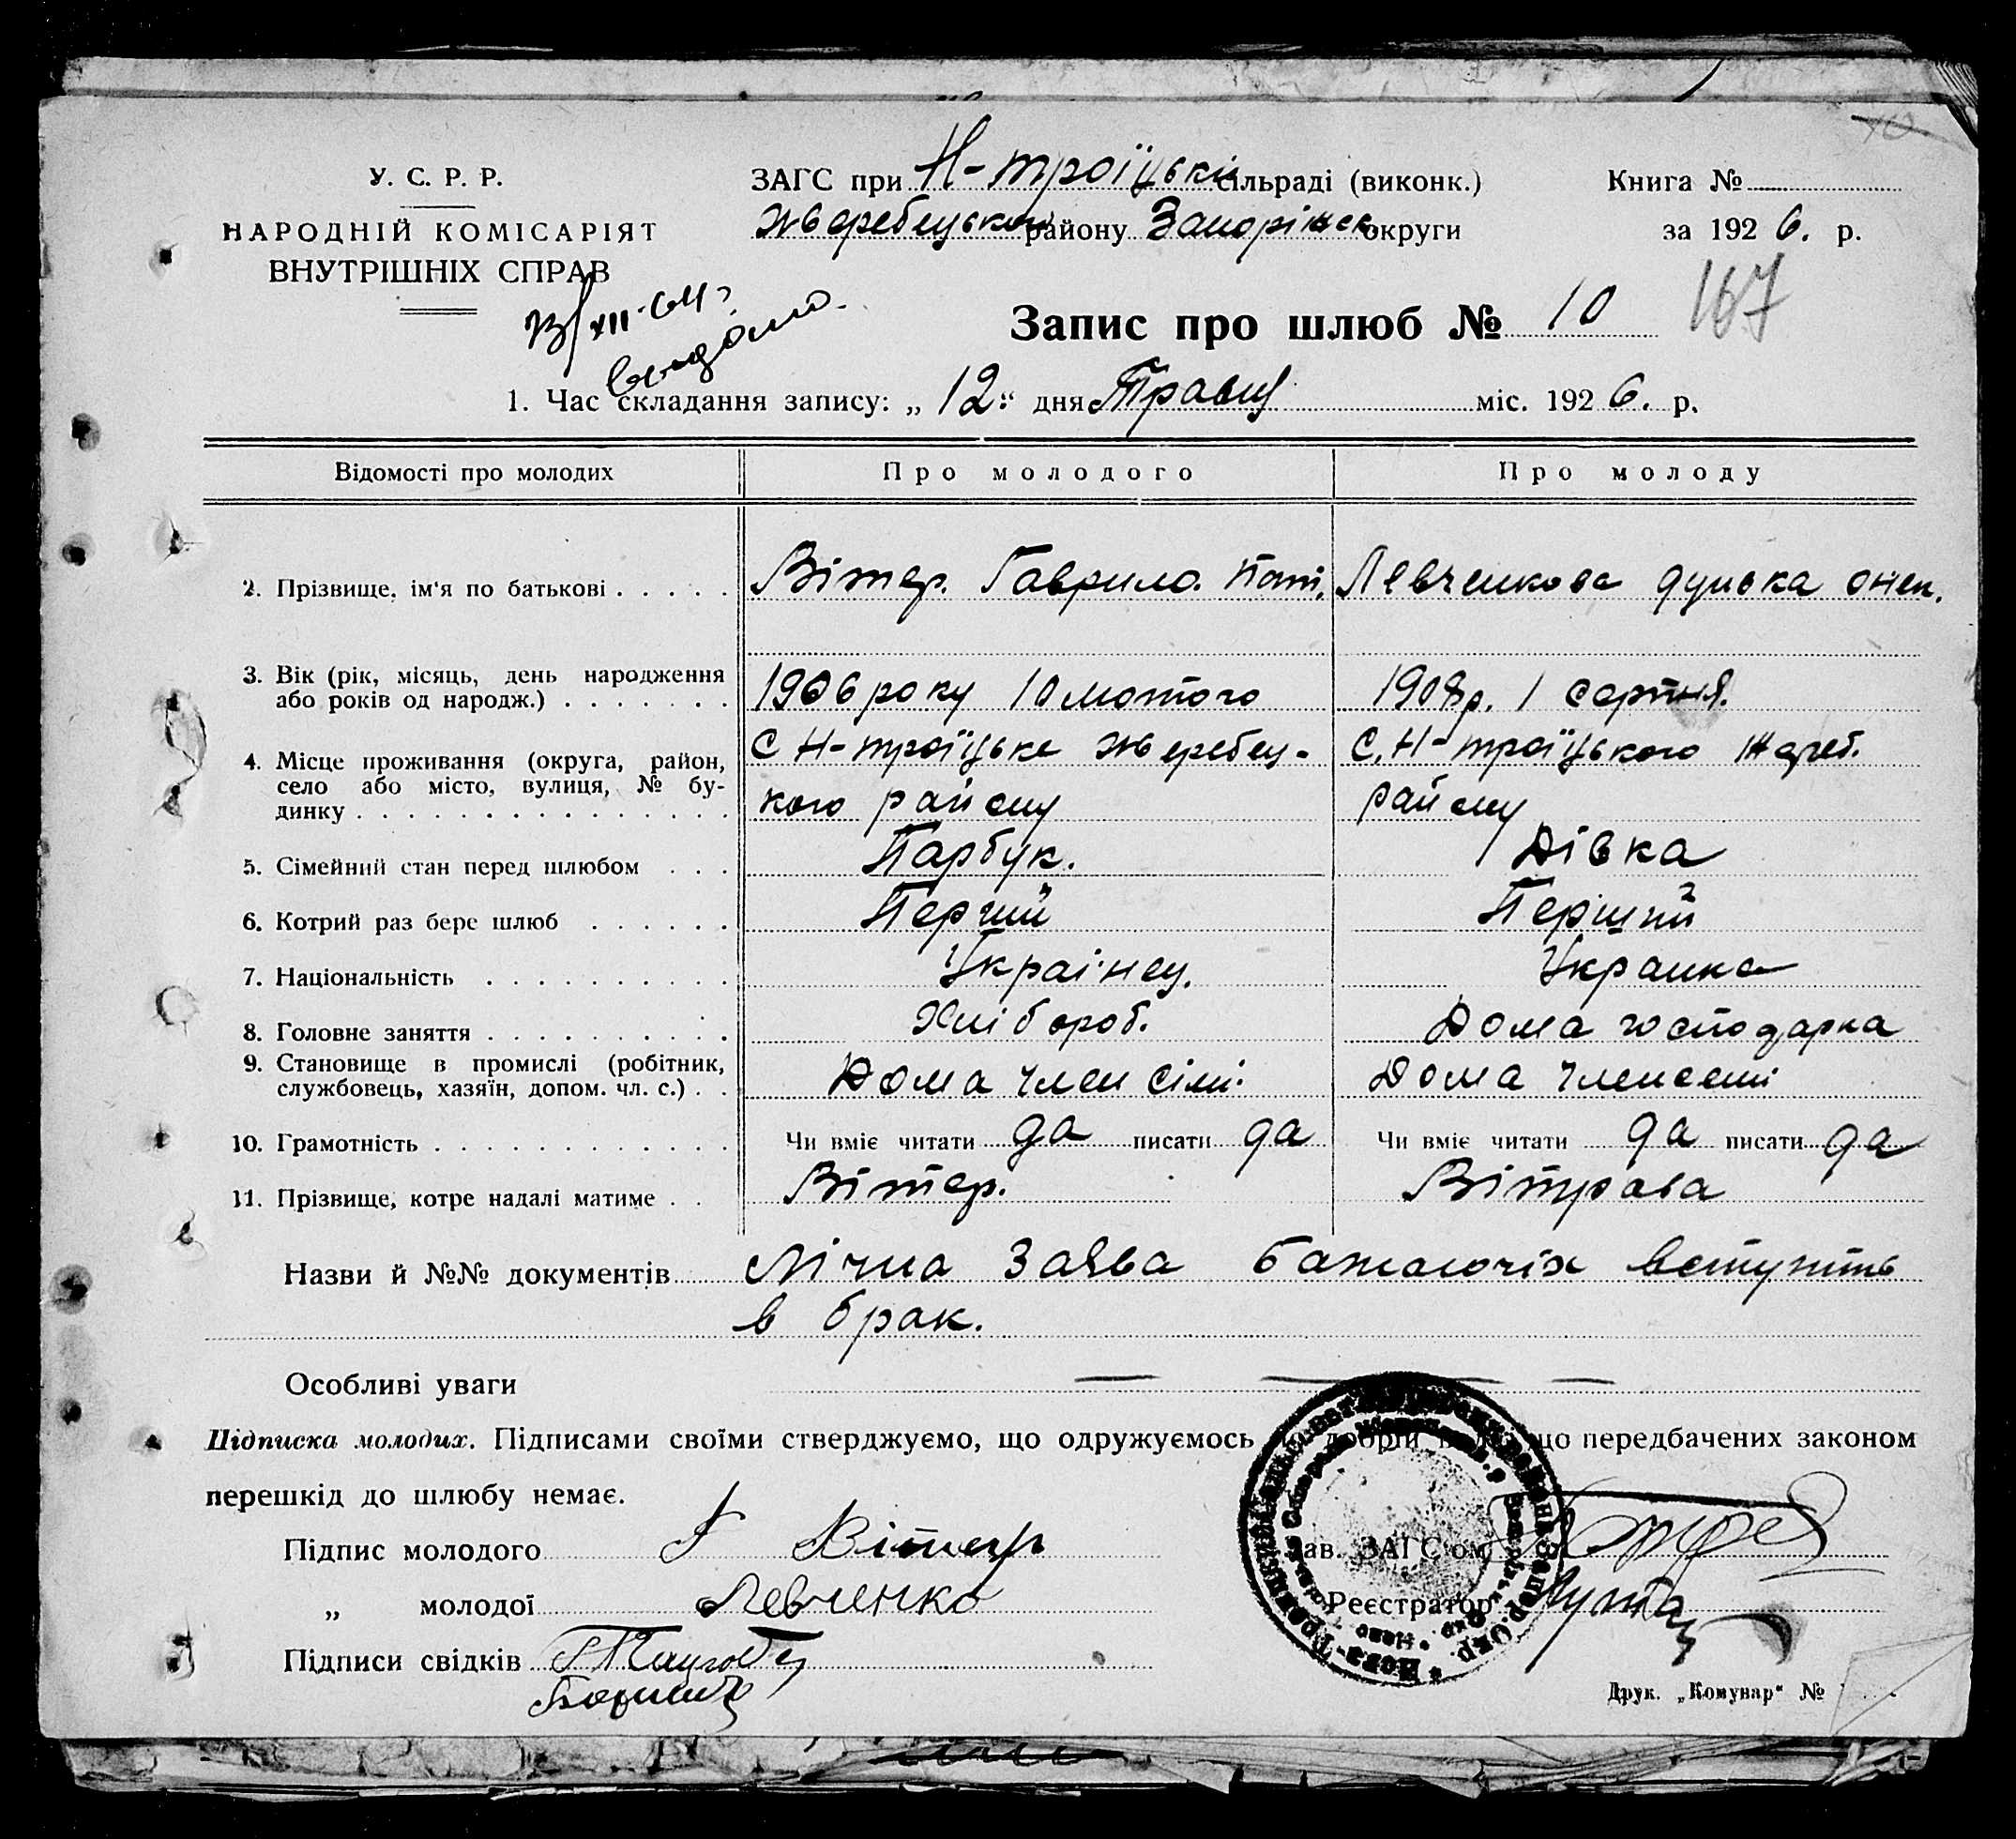 У. С. Р. Р.
НАРОДНІЙ КОМІСАРІЯТ
ВНУТРІШНІХ СПРАВ
ЗАГС при Н-троїцькі сільраді (виконк.)
Жеребецького району Запоріжск округи
Книга №
за 1926. р.
Запис про шлюб № 10
167
1. Час складання запису: „12" дня Травня міс. 1926. р.
Відомості про молодих Про молодого Про молоду
2. Прізвище, ім'я по батькові Вітер. Гаврило. Пот. Левченкова Дунька Онек.
3. Вік (рік, місяць, день народження
або років од народж.) 1906 року 10 лютого 1908 р. 1 серпня.
4. Місце проживання (округа, район,
село або місто, вулиця, № бу-
динку С Н-троїцьке Жеребец-
кого району С. Н-троїцького Жереб.
району
5. Сімейний стан перед шлюбом Парбук. Дівка
6. Котрий раз бере шлюб Перший Перший
7. Національність Україінец. Украинка
8. Головне заняття Хлібороб. Дома господарка
9. Становище в промислі (робітник,
службовець, хазяїн, допом. чл. с.) Дома член сімі Дома член семі
10. Грамотність Чи вміє читати да писати да Чи вміє читати да писати да
11. Прізвище, котре надалі матиме Вітер. Вітрова
Назви й №№ документів Лічна Заява бажаючіх вступить
в брак.
Особливі уваги
Підписка молодих. Підписами своїми стверджуємо, що одружуємось добрій що передбачених законом
перешкід до шлюбу немає.
Підпис молодого Г Вітер
„ молодої Левченко
Підписи свідків
Зав. ЗАГС'ом
Реєстратор
Друк. „Комунар" №